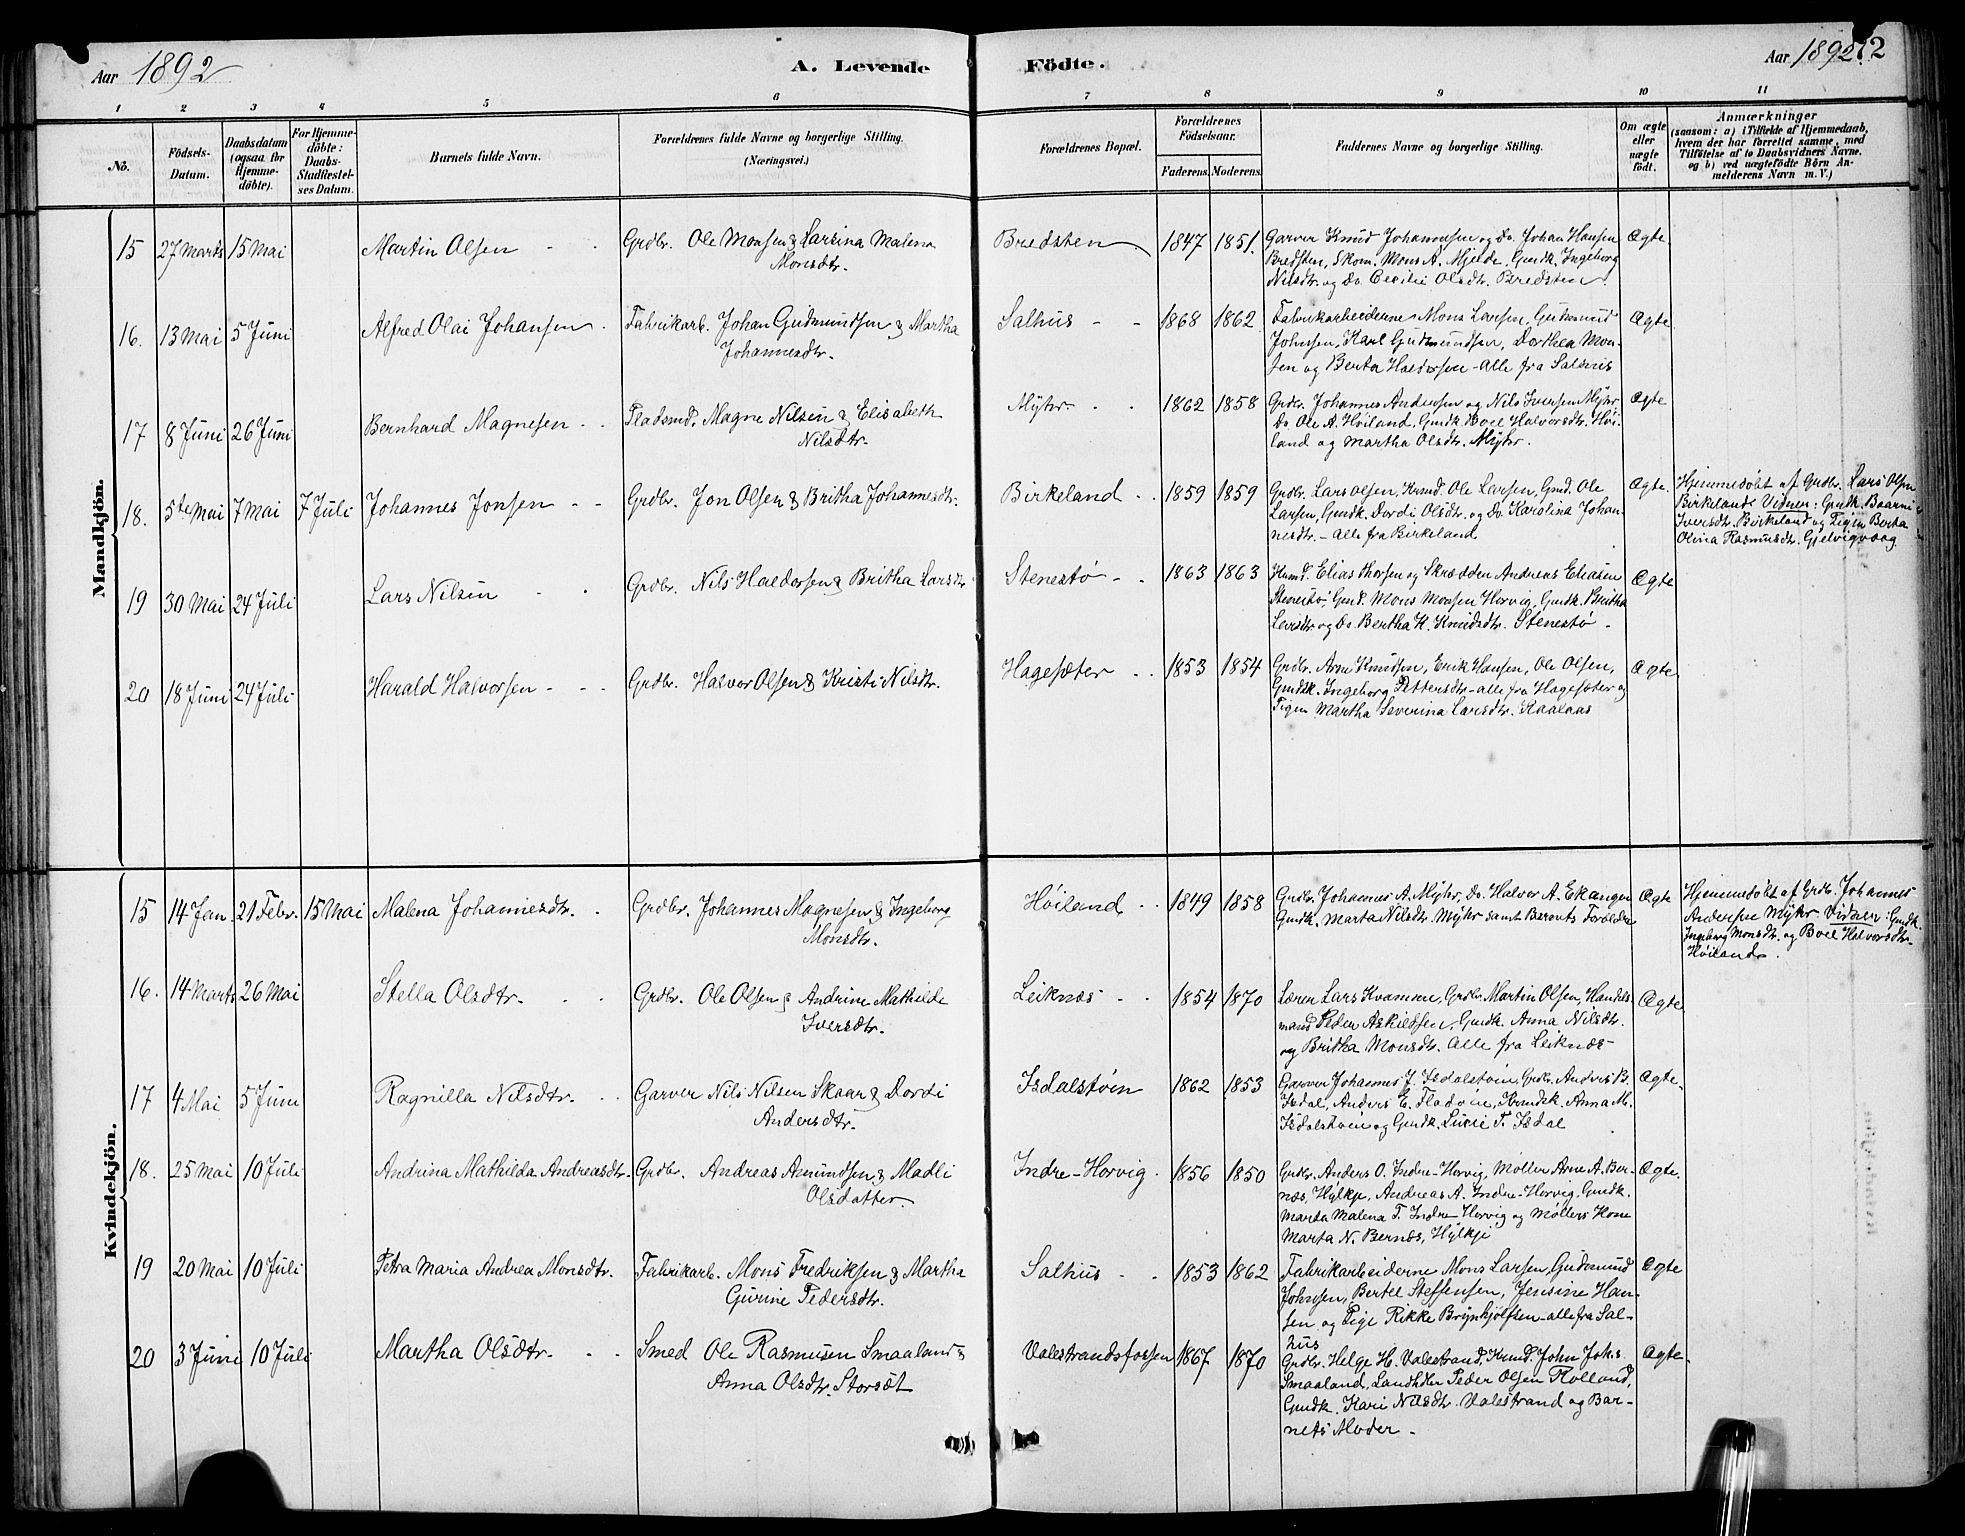 Aar 1892 A. Levende Födte. Aar 1892. 72
1 2 3 4 5 6 7 8 9 10 11
No. Födsels-Datum. Daabsdatum (ogsaa for Hjemme-döbte). For Hjemme-döbte: Daabs-Stadfæstel-ses Datum. Barnets fulde Navn. Forældrenes fulde Navne og borgerlige Stilling. (Næringsvei.) Forældrenes Bopæl. Forældrenes Födselsaar. Faderens. Moderens. Faddernes Navne og borgerlige Stilling. Om ægte eller uægte födt. Anmærkninger (saasom: a) i Tilfælde af Hjemmedaab, hvem der har forrettet samme, med Tilföielse af to Daabsvidners Navne. og b) ved uægtefödte Börn An-melderens Navn m. V.)
Mandkjön.
15 27 Marts 15 Mai Martin Olsen - - Grdbr. Ole Monsen & Larsina Malena Bredsten 1847 1851. Garver Knud Johannesen og do. Johan Hansen Ægte.
Monsdtr. Bredsten, Skom. Mons A. Mjelde, Gmdk. Ingeborg
Nilsdtr. og do. Cecilie Olsdtr. Bredsten.
16. 13 Mai 5 Juni Alfred Olai Johansen - Fabrikarb. Johan Gudmundsen & Martha Salhus - - 1868 1862 Fabrikarbeiderne Mons Larsen, Gudmund Ægte
Johannesdtr. Johnsen, Karl Gudmundsen, Dorthea Mon-
sen og Berta Haldorsen - Alle fra Salhus
17 8 Juni 26 Juni Bernhard Magnesen - - Pladsmd. Magne Nilsen & Elisabeth Myhr - - 1862 1858 Grdbr. Johannes Andersen og Nils Iversen Myhr Ægte
Nilsdtr. Do Ole A. Höiland, Gmdk. Boel Halvorsdtr. Höi-
land og Martha Olsdtr. Myhr.
18. 5te Mai 7 Mai 7 Juli Johannes Jonsen - - Grdbr. Jon Olsen & Britha Johannesdtr. Birkeland - - 1859 1859 Grdbr. Lars Olsen, Krmd. Ole Larsen, Gmd. Ole Ægte. Hjemmedöbt af Grdbr. Lars Olsen
Larsen, Gmdk. Dordi Olsdtr. og Do Karolina Johan- Birkeland Vidner: Gmdk. Baarni
nesdtr. - Alle fra Birkeland Iversdtr. Birkeland og Pigen Berta
Olina Rasmusdtr. Gjelvigvaag
19 30 Mai 24 Juli Lars Nilsen - - Grdbr. Nils Haldorsen & Britha Larsdtr Stenestø - - 1863 1863 Krmd. Elias Thorsen og Skrædder Andreas Eliasen Ægte
Stenestø, Gmd. Mons Monsen Hervig, Gmdk. Britha
Larsdtr og Do. Bertha K. Knudsdtr. Stenestø -
20 18 Juni 24 Juli Harald Halvorsen - - - Grdbr. Halvor Olsen & Kristi Nilsdtr. Hagesæter - - 1853 1854 Grdbr. Arne Knudsen, Erik Hansen, Ole Olsen, Ægte
Gmdsk. Ingeborg Pettersdtr - alle fra Hagesæter og
Pigen Martha Severina Larsdtr. Kaalaas
Kvindekjön.
15 14 Jan 21 Febr. 15 Mai Malena Johannesdtr. - Grdbr. Johannes Magnesen & Ingeborg Höiland - - 1849 1858 Grdbr. Johannes A. Myhr, Do. Halvor A. Ekanger Ægte Hjemmedöbt af Grdbr. Johannes
Monsdtr. Gmdk. Marta Nilsdtr. Myhr samt Barnets Foreldre Andersen Myhr Vidner: Gmdk.
Ingeborg Monsdtr. og Boel Halvorsdtr.
Höiland.
16. 14 Marts 26 Mai Stella Olsdtr. - - Grdbr. Ole Olsen & Andrine Mathilde Leiknæs - - 1854 1870 Lærer Lars Kvammen, Grdbr. Martin Olsen, Handels- Ægte
Iversdtr. mand Peder Askildsen, Gmdk. Anna Nilsdtr.
og Britha Monsdtr. Alle fra Leiknæs
17 4 Mai 5 Juni Ragnilla Nilsdtr. - - Garver Nils Nilsen Skaar & Dordi Isdalstøen 1862 1853 Garver Johannes J. Isdalstøen, Grdbr. Anders B. Ægte.
Andersdtr. Isdal, Anders E. Fladøen, Krmdsk. Anna M.
Isdalstøen og Gmdk. Lucie T. Isdal
18. 25 Mai 10 Juli Andrina Mathilda Andreasdtr. Grdbr. Andreas Amundsen & Madli Indre-Hervig. 1856 1850 Grdbr. Anders O. Indre-Hervig, Møller Arne A. Ber- Ægte.
Olsdatter næs, Hylkje, Andreas A. Indre-Hervig, Gmdk.
Marta Malena T. Indre Hervig og Møllers Kone
Marta N. Bernæs, Hylkje
19 20 Mai 10 Juli Petra Maria Andrea Monsdtr. Fabrikarb. Mons Fredriksen & Martha Salhus - - 1853 1862 Fabrikarbeiderne Mons Larsen, Gudmund Ægte
Gurine Pedersdtr. Johnsen, Bertel Steffensen, Jensine Han-
sen og Pige Rikke Brynhjolfsen - alle fra Sal-
hus
20 3 Juni 10 Juli Martha Olsdtr. - - Smed Ole Rasmusen Smaaland & Valestrandsfossen 1867 1870 Grdbr. Helge H. Valestrand, Krmd. John Johs. Ægte.
Anna Olsdtr. Storsæt Smaaland, Landhdler Peder Olsen Holland,
Gmdk. Kari Nilsdtr. Valestrand og Bar-
nets Moder -